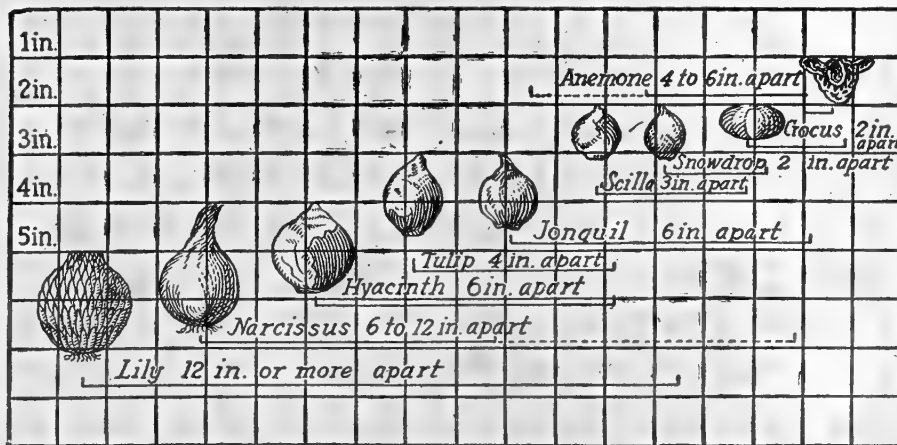 1in.
2in.
3in.
4in.
5in.
Anemone 4 to 6in. apart
Crocus 2in.
apart
Snowdrop 2 in. apart
Scilla 3in. apart
Jonquil 6in. apart
Tulip 4in. apart
Hyacinth 6in. apart
Narcissus 6 to 12in. apart
Lily 12 in. or more apart